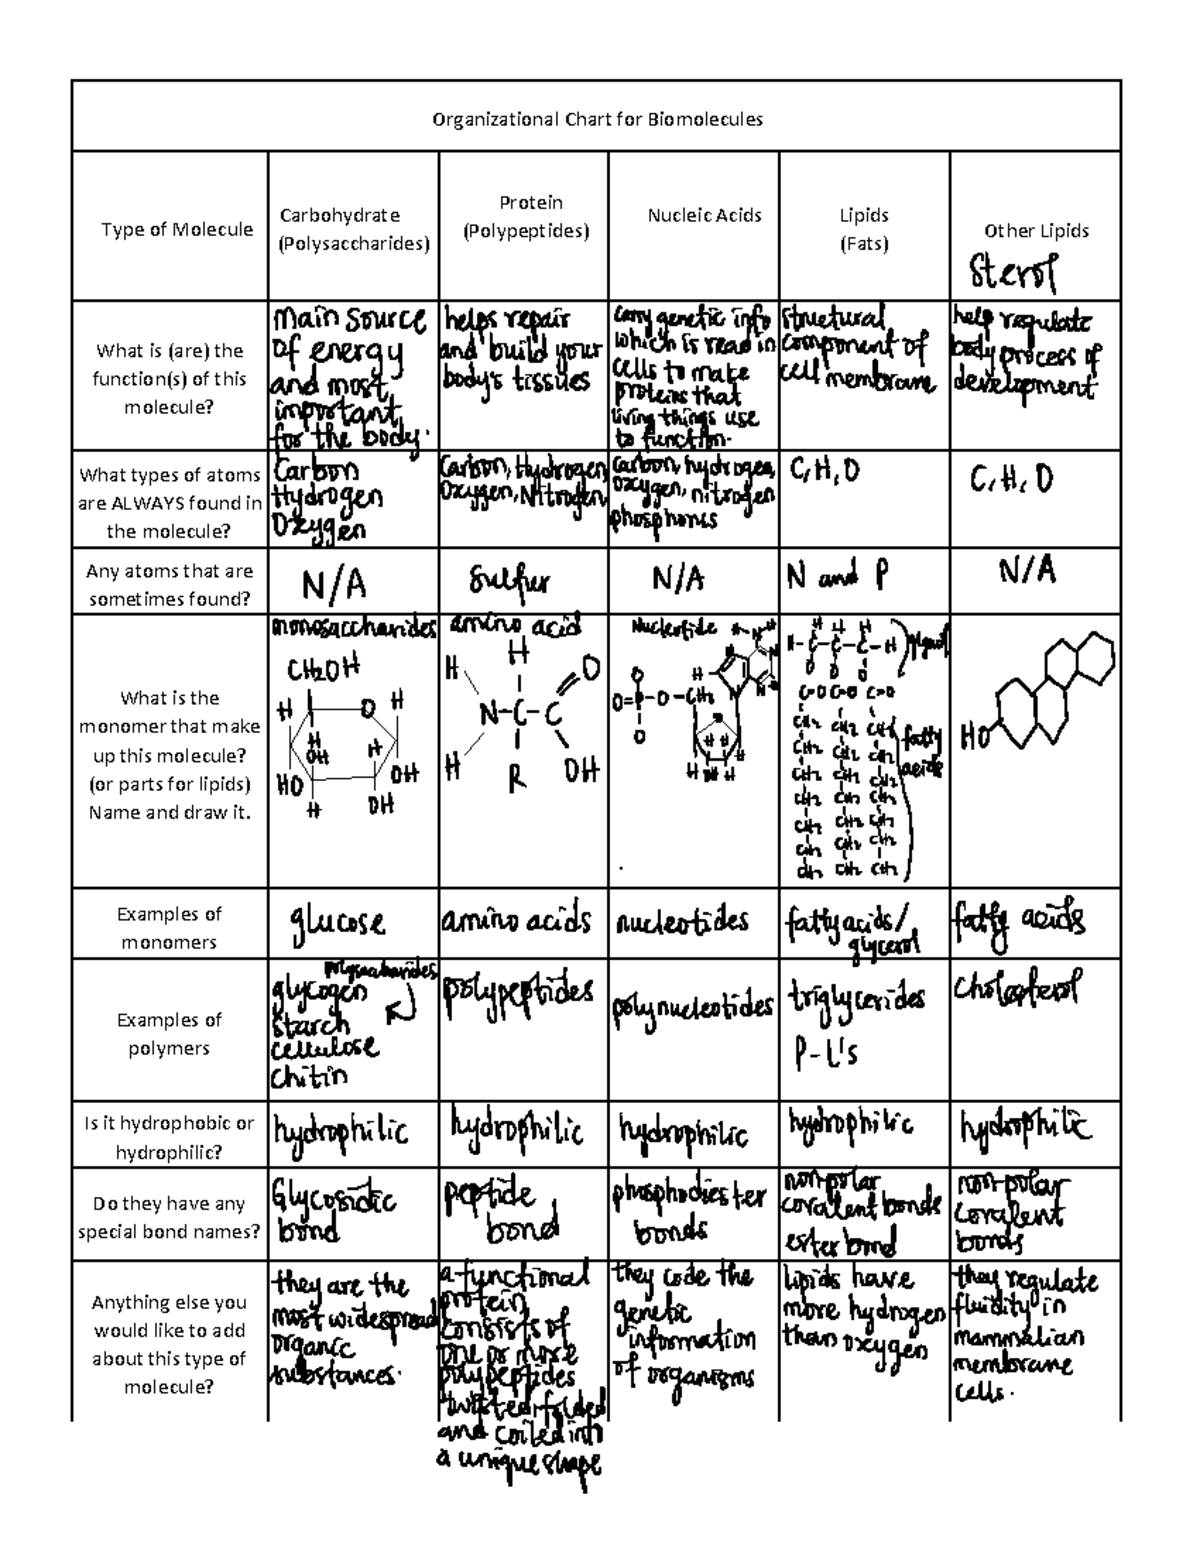 Organizational Chart for Biomolecules
Type of Molecule
Carbohydrate
(Polysaccharides)
Protein
(Polypeptides)
Nucleic Acids
Lipids
(Fats)
Other Lipids
Sterol
What is (are) the
function(s) of this
molecule?
Main source
of energy
and most
important
for the body.
helps repair
and build your
body's tissues
carry genetic info
which is read in
cells to make
proteins that
living things use
to function.
structural
component of
cell membrane
help regulate
body process of
development
What types of atoms
are ALWAYS found in
the molecule?
Carbon
Hydrogen
Oxygen
Carbon, Hydrogen,
Oxygen, Nitrogen
Carbon, hydrogen,
oxygen, nitrogen
C, H, O
C, H, O
Any atoms that are
sometimes found?
N/A
Sulfur
N/A
N and P
N/A
What is the
monomer that make
up this molecule?
(or parts for lipids)
Name and draw it.
monosaccharides
CH2OH
H
O
H
H
OH
H
HO
OH
H
OH
amino acid
H
H
O
N-C-C
H
R
OH
Nucleotide
H-N-H
N
N
H
O
O=P-O-CH2
O
N
N
H H
H
H
H H
H H H
H-C-C-C-H
glycerol
O O O
C=O C=O C=O
CH2 CH2 CH2
CH2 CH2 CH2
fatty
acids
CH2 CH2 CH2
CH2 CH2 CH2
CH2 CH2 CH2
CH2 CH2 CH2
CH2 CH2 CH2
HO
Examples of
monomers
glucose
amino acids
nucleotides
fatty acids/
glycerol
fatty acids
Examples of
polymers
polysaccharides
glycogen
starch
cellulose
chitin
polypeptides
polynucleotides
triglycerides
P-L's
cholesterol
Is it hydrophobic or
hydrophilic?
hydrophilic
hydrophilic
hydrophilic
hydrophilic
hydrophilic
Do they have any
special bond names?
Glycosidic
bond
peptide
bond
phosphodiester
bonds
non-polar
covalent bonds
ester bond
non-polar
covalent
bonds
Anything else you
would like to add
about this type of
molecule?
they are the
most widespread
organic
substances.
a functional
protein
consists of
one or more
polypeptides
twisted, folded
and coiled into
a unique shape
they code the
genetic
information
of organisms
lipids have
more hydrogen
than oxygen
they regulate
fluidity in
mammalian
membrane
cells.